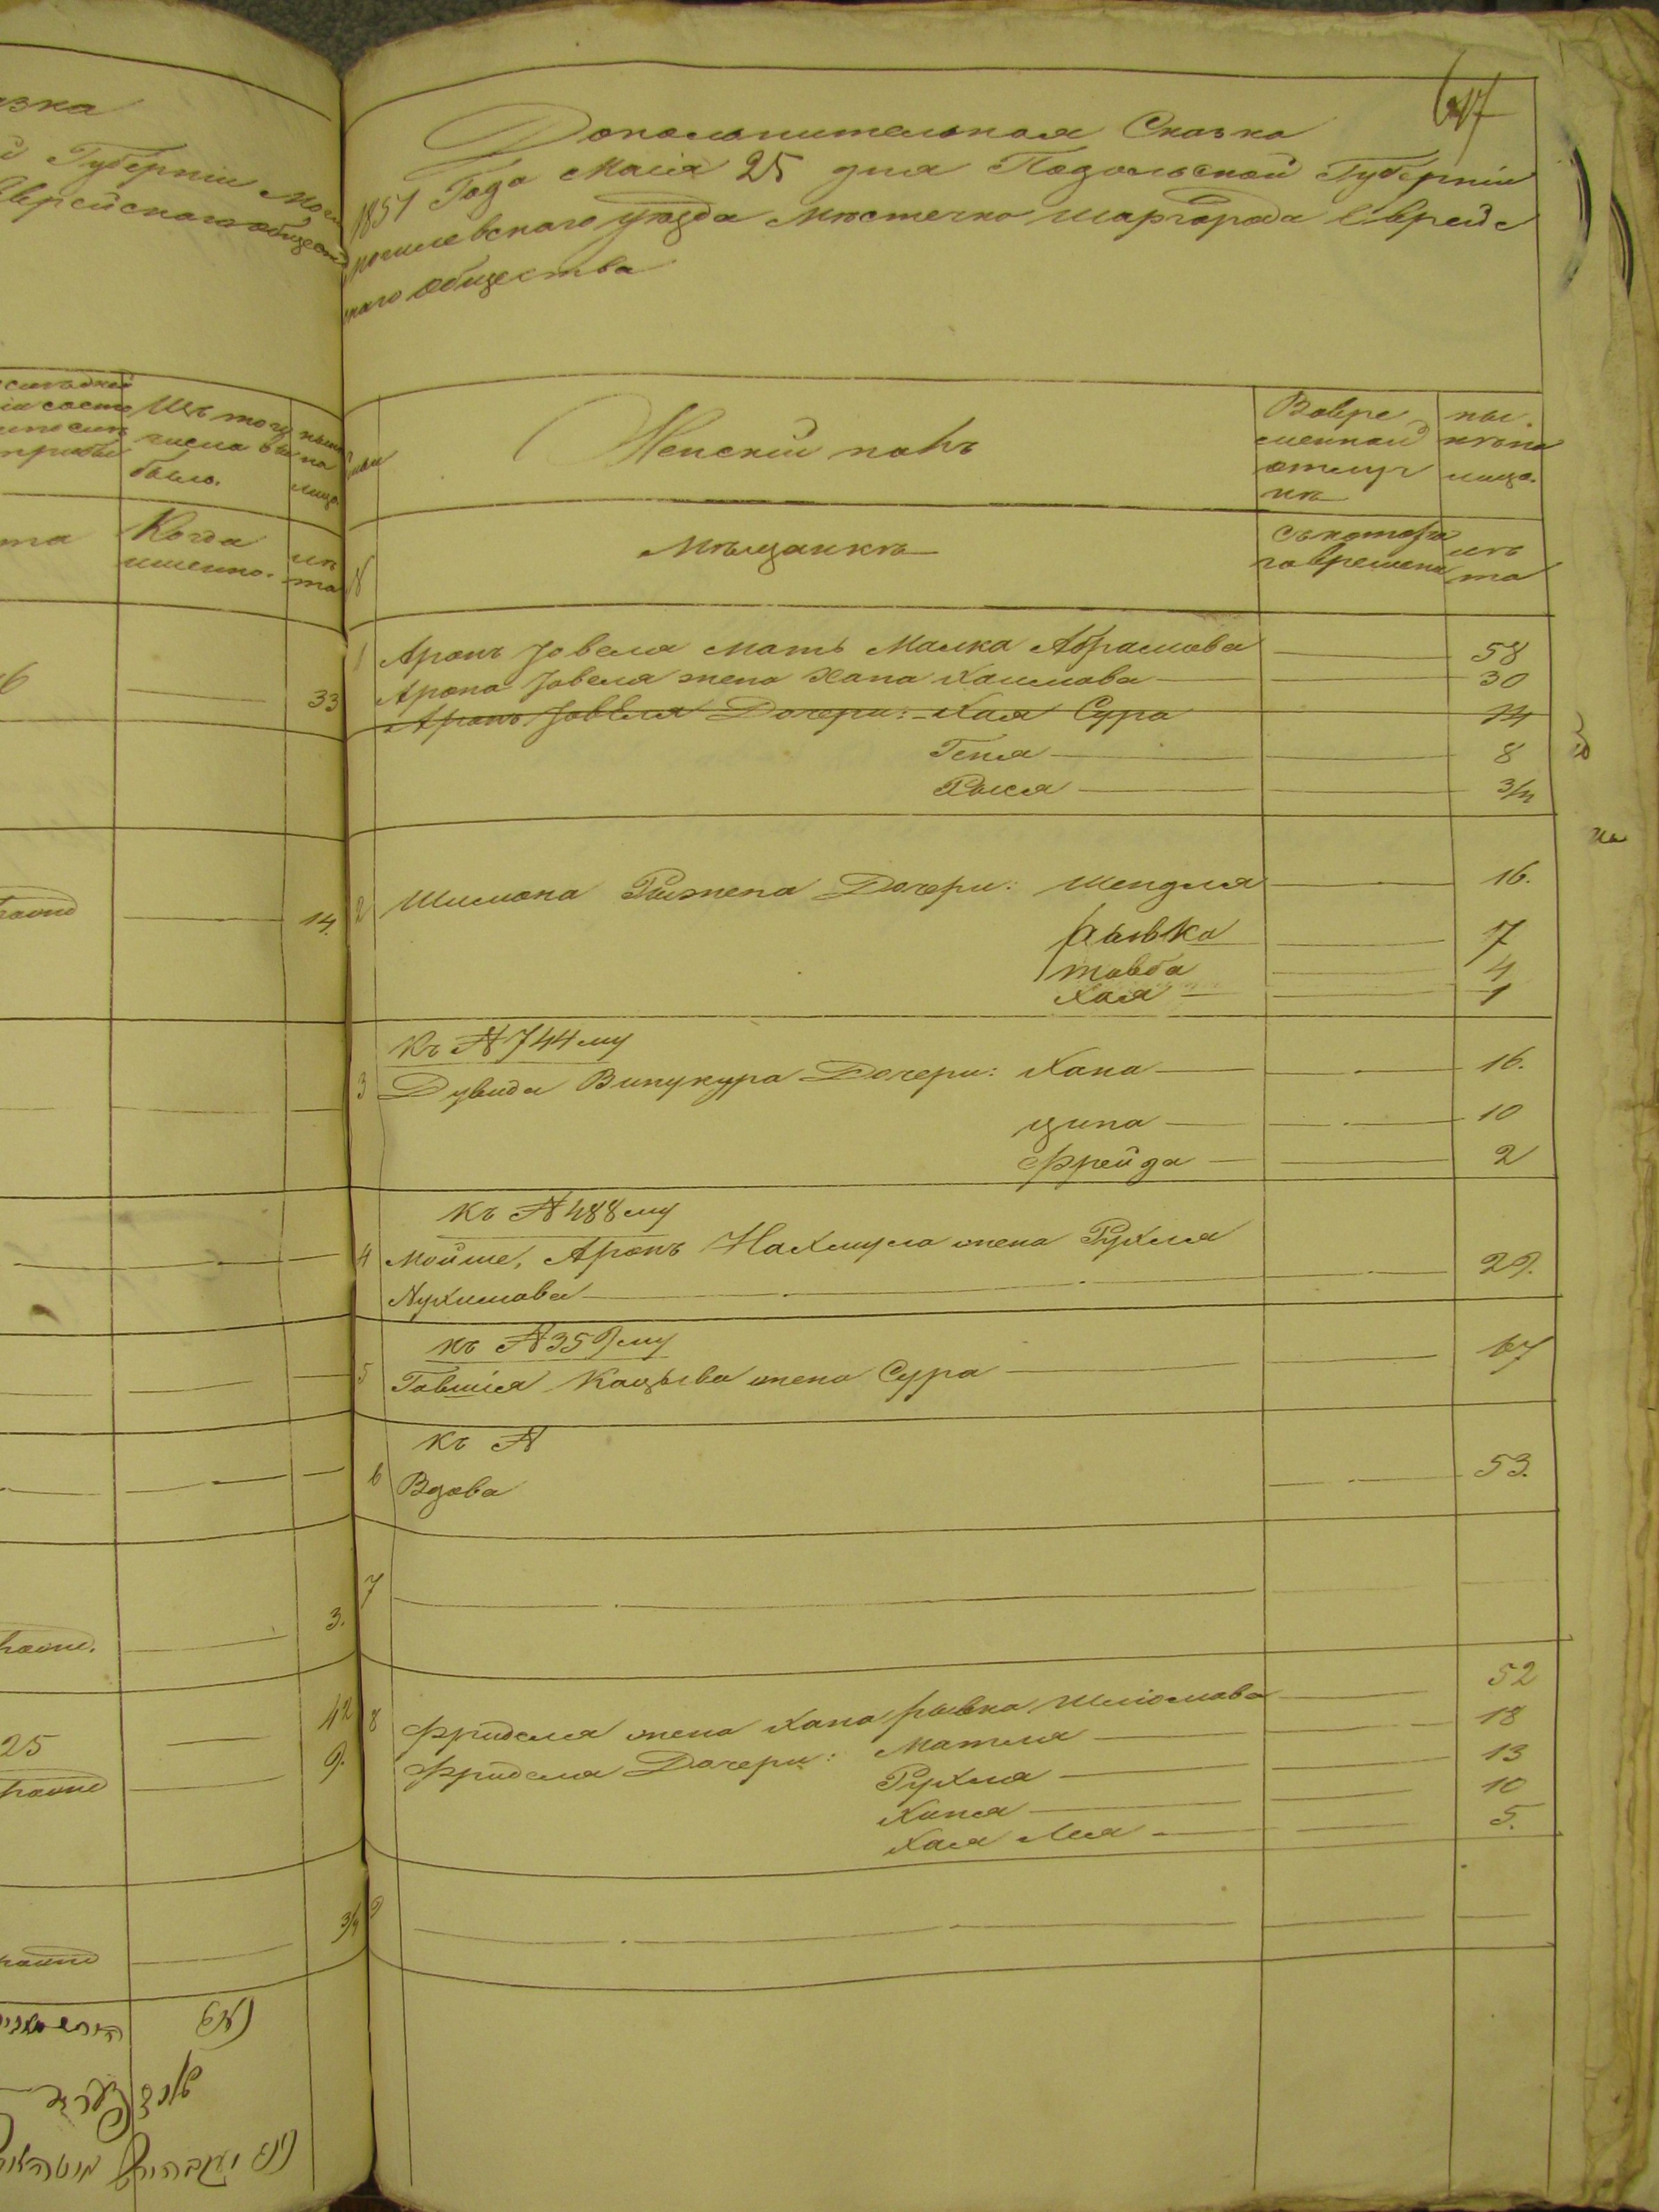 азка
Губерніи Моги
Еврейскаго обществ
Изъ того
числа вы
было.
ныне
на
лицо
Когда
именно.
лѣ
та
33
14.
3.
25
42
9.
Дополнительная Сказка
1851 Года Маія 25 дня Подольской Губерніи
Могилевскаго уѣзда Мѣстечко Шаргорода Еврейс
каго Общества
Женскій полъ
Вовре
менной
отлуч
кѣ
ны.
нѣ на
лицо.
№
Мѣщанкѣ
съ котора
го времени
лѣ
та
1 Аронъ Іовеля мать Малка Абрамова 58
Арона Іовеля жена Хана Хаимова 30
Аронъ Іовеля Дочери: Хая Сура 14
Геня 8
Рыся 3/м
2 Шимона Рижена Дочери: Шендля 16.
Рывка 7
товба 4
Хая 1
Къ № 744му
3 Дувида Винукура Дочери: Хана 16.
ципа 10
Фрейда 2
Къ № 488му
4 Мойше, Аронъ Нахмула жена Рухля
Нухимова 29.
Къ № 359му
5 Говшія Кацыва жена Сура 67
Къ №
6 Вдова 53.
7
8 Фриделя жена Хана рывка Шліомова 52
Фриделя Дочери: Матля 18
Рухля 13
Ханя 10
Хая Лея 5.
9